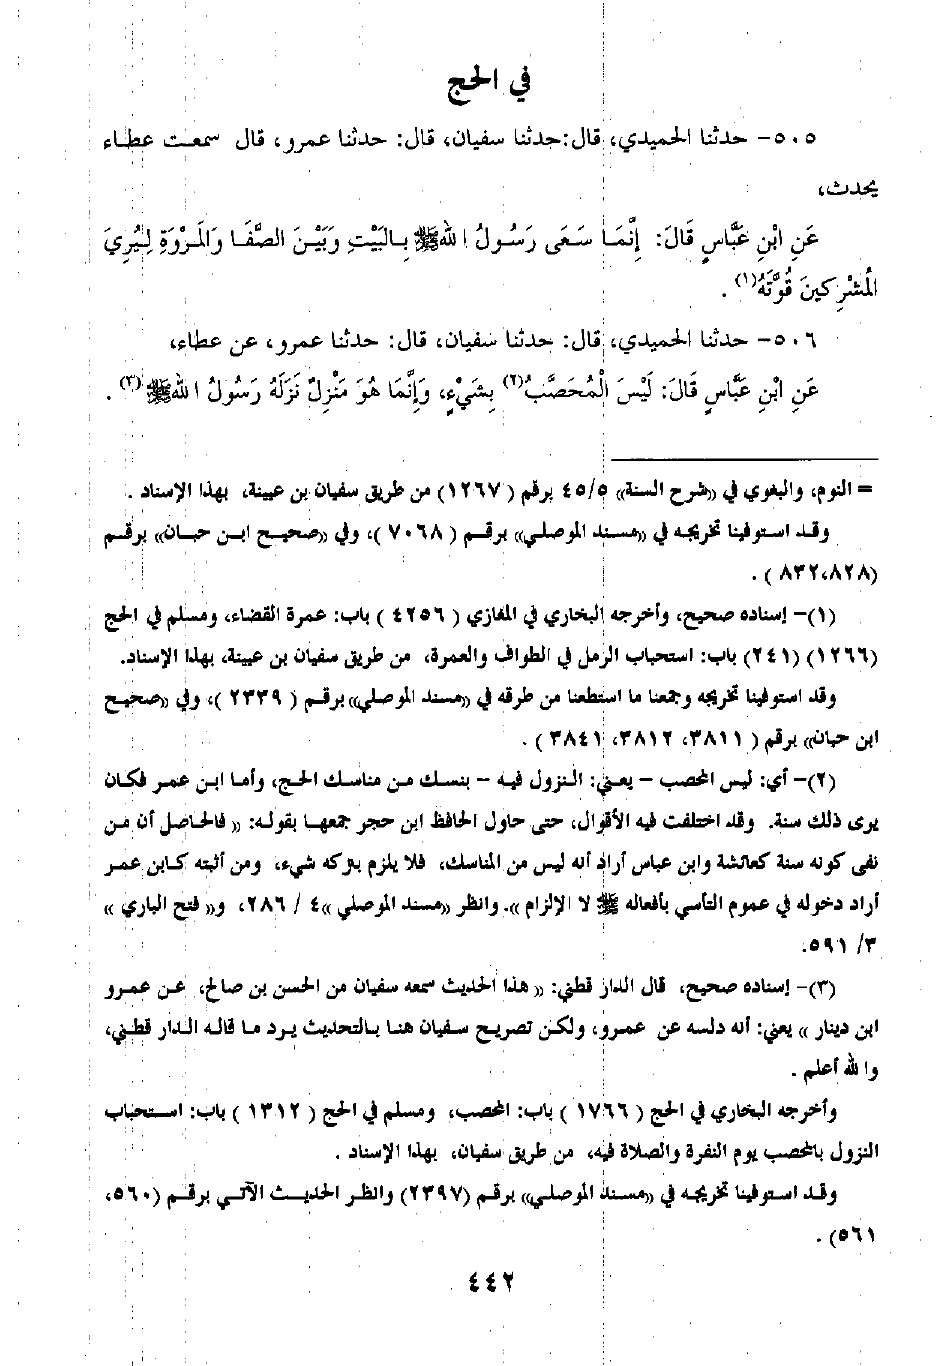 في الحج
٥٠٥- حدثنا الحميدي، قال:حدثنا سفيان، قال: حدثنا عمرو، قال سمعت عطاء
يحدث،
عَنِ ابْنِ عَبَّاسٍ قَالَ: إِنَّمَا سَعَى رَسُولُ اللهِ ﷺ بِالبَيْتِ وَبَيْنَ الصَّفَا وَالمَرْوَةِ لِيُرِيَ
الْمُشْرِكِينَ قُوَّتَهُ(١) .
٥٠٦- حدثنا الحميدي، قال: حدثنا سفيان، قال: حدثنا عمرو، عن عطاء،
عَنِ ابْنِ عَبَّاسٍ قَالَ: لَيْسَ الْمُحَصَّبُ(٢) بِشَيْءٍ، وَإِنَّمَا هُوَ مَنْزِلٌ نَزَلَهُ رَسُولُ اللهِ ﷺ(٣) .
= النوم، والبغوي في «شرح السنة» ٤٥/٥ برقم (١٢٦٧) من طريق سفيان بن عيينة، بهذا الإسناد .
وقد استوفينا تخريجه في «مسند الموصلي» برقم ( ٧٠٦٨ )، وفي «صحيح ابن حبان» برقم
(٨٣٢،٨٢٨ ) .
(١)- إسناده صحيح، وأخرجه البخاري في المغازي ( ٤٢٥٦ ) باب: عمرة القضاء، ومسلم في الحج
(١٢٦٦) (٢٤١) باب: استحباب الرمل في الطواف والعمرة، من طريق سفيان بن عيينة، بهذا الإسناد.
وقد استوفينا تخريجه وجمعنا ما استطعنا من طرقه في «مسند الموصلي» برقم ( ٢٣٣٩ )، وفي «صحيح
ابن حبان» برقم ( ٣٨١١، ٣٨١٢، ٣٨٤١ ) .
(٢)- أي: ليس المحصب - يعني: النزول فيه - بنسك من مناسك الحج، وأما ابن عمر فكان
يرى ذلك سنة. وقد اختلفت فيه الأقوال، حتى حاول الحافظ ابن حجر جمعها بقوله: « فالحاصل أن من
نفى كونه سنة كعائشة وابن عباس أراد أنه ليس من المناسك، فلا يلزم بتركه شيء، ومن أثبته كابن عمر
أراد دخوله في عموم التأسي بأفعاله ﷺ لا الإلزام ». وانظر «مسند الموصلي »٤ / ٢٨٦، و« فتح الباري »
٣/ ٥٩١.
(٣)- إسناده صحيح، قال الدار قطني: « هذا الحديث سمعه سفيان من الحسن بن صالح، عن عمرو
ابن دينار » يعني: أنه دلسه عن عمرو، ولكن تصريح سفيان هنا بالتحديث يرد ما قاله الدار قطني،
والله أعلم .
وأخرجه البخاري في الحج ( ١٧٦٦ ) باب: المحصب، ومسلم في الحج ( ١٣١٢ ) باب: استحباب
النزول بالمحصب يوم النفرة والصلاة فيه، من طريق سفيان، بهذا الإسناد .
وقد استوفينا تخريجه في «مسند الموصلي» برقم (٢٣٩٧) وانظر الحديث الآتي برقم (٥٦٠،
٥٦١) .
٤٤٢